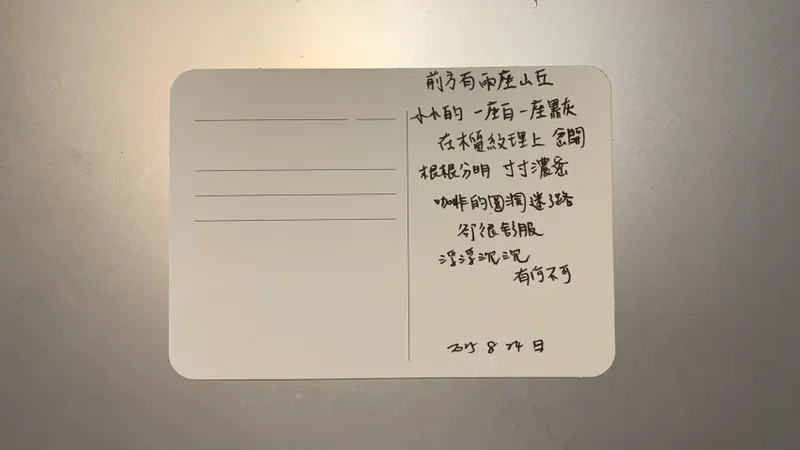 前方有兩座山丘
小小的 一座白一座黑灰
在木質紋理上 岔開
根根分明 寸寸濃密
咖啡的圓潤迷了路
卻很舒服
浮浮沉沉
有何不可
2025 8 24 日